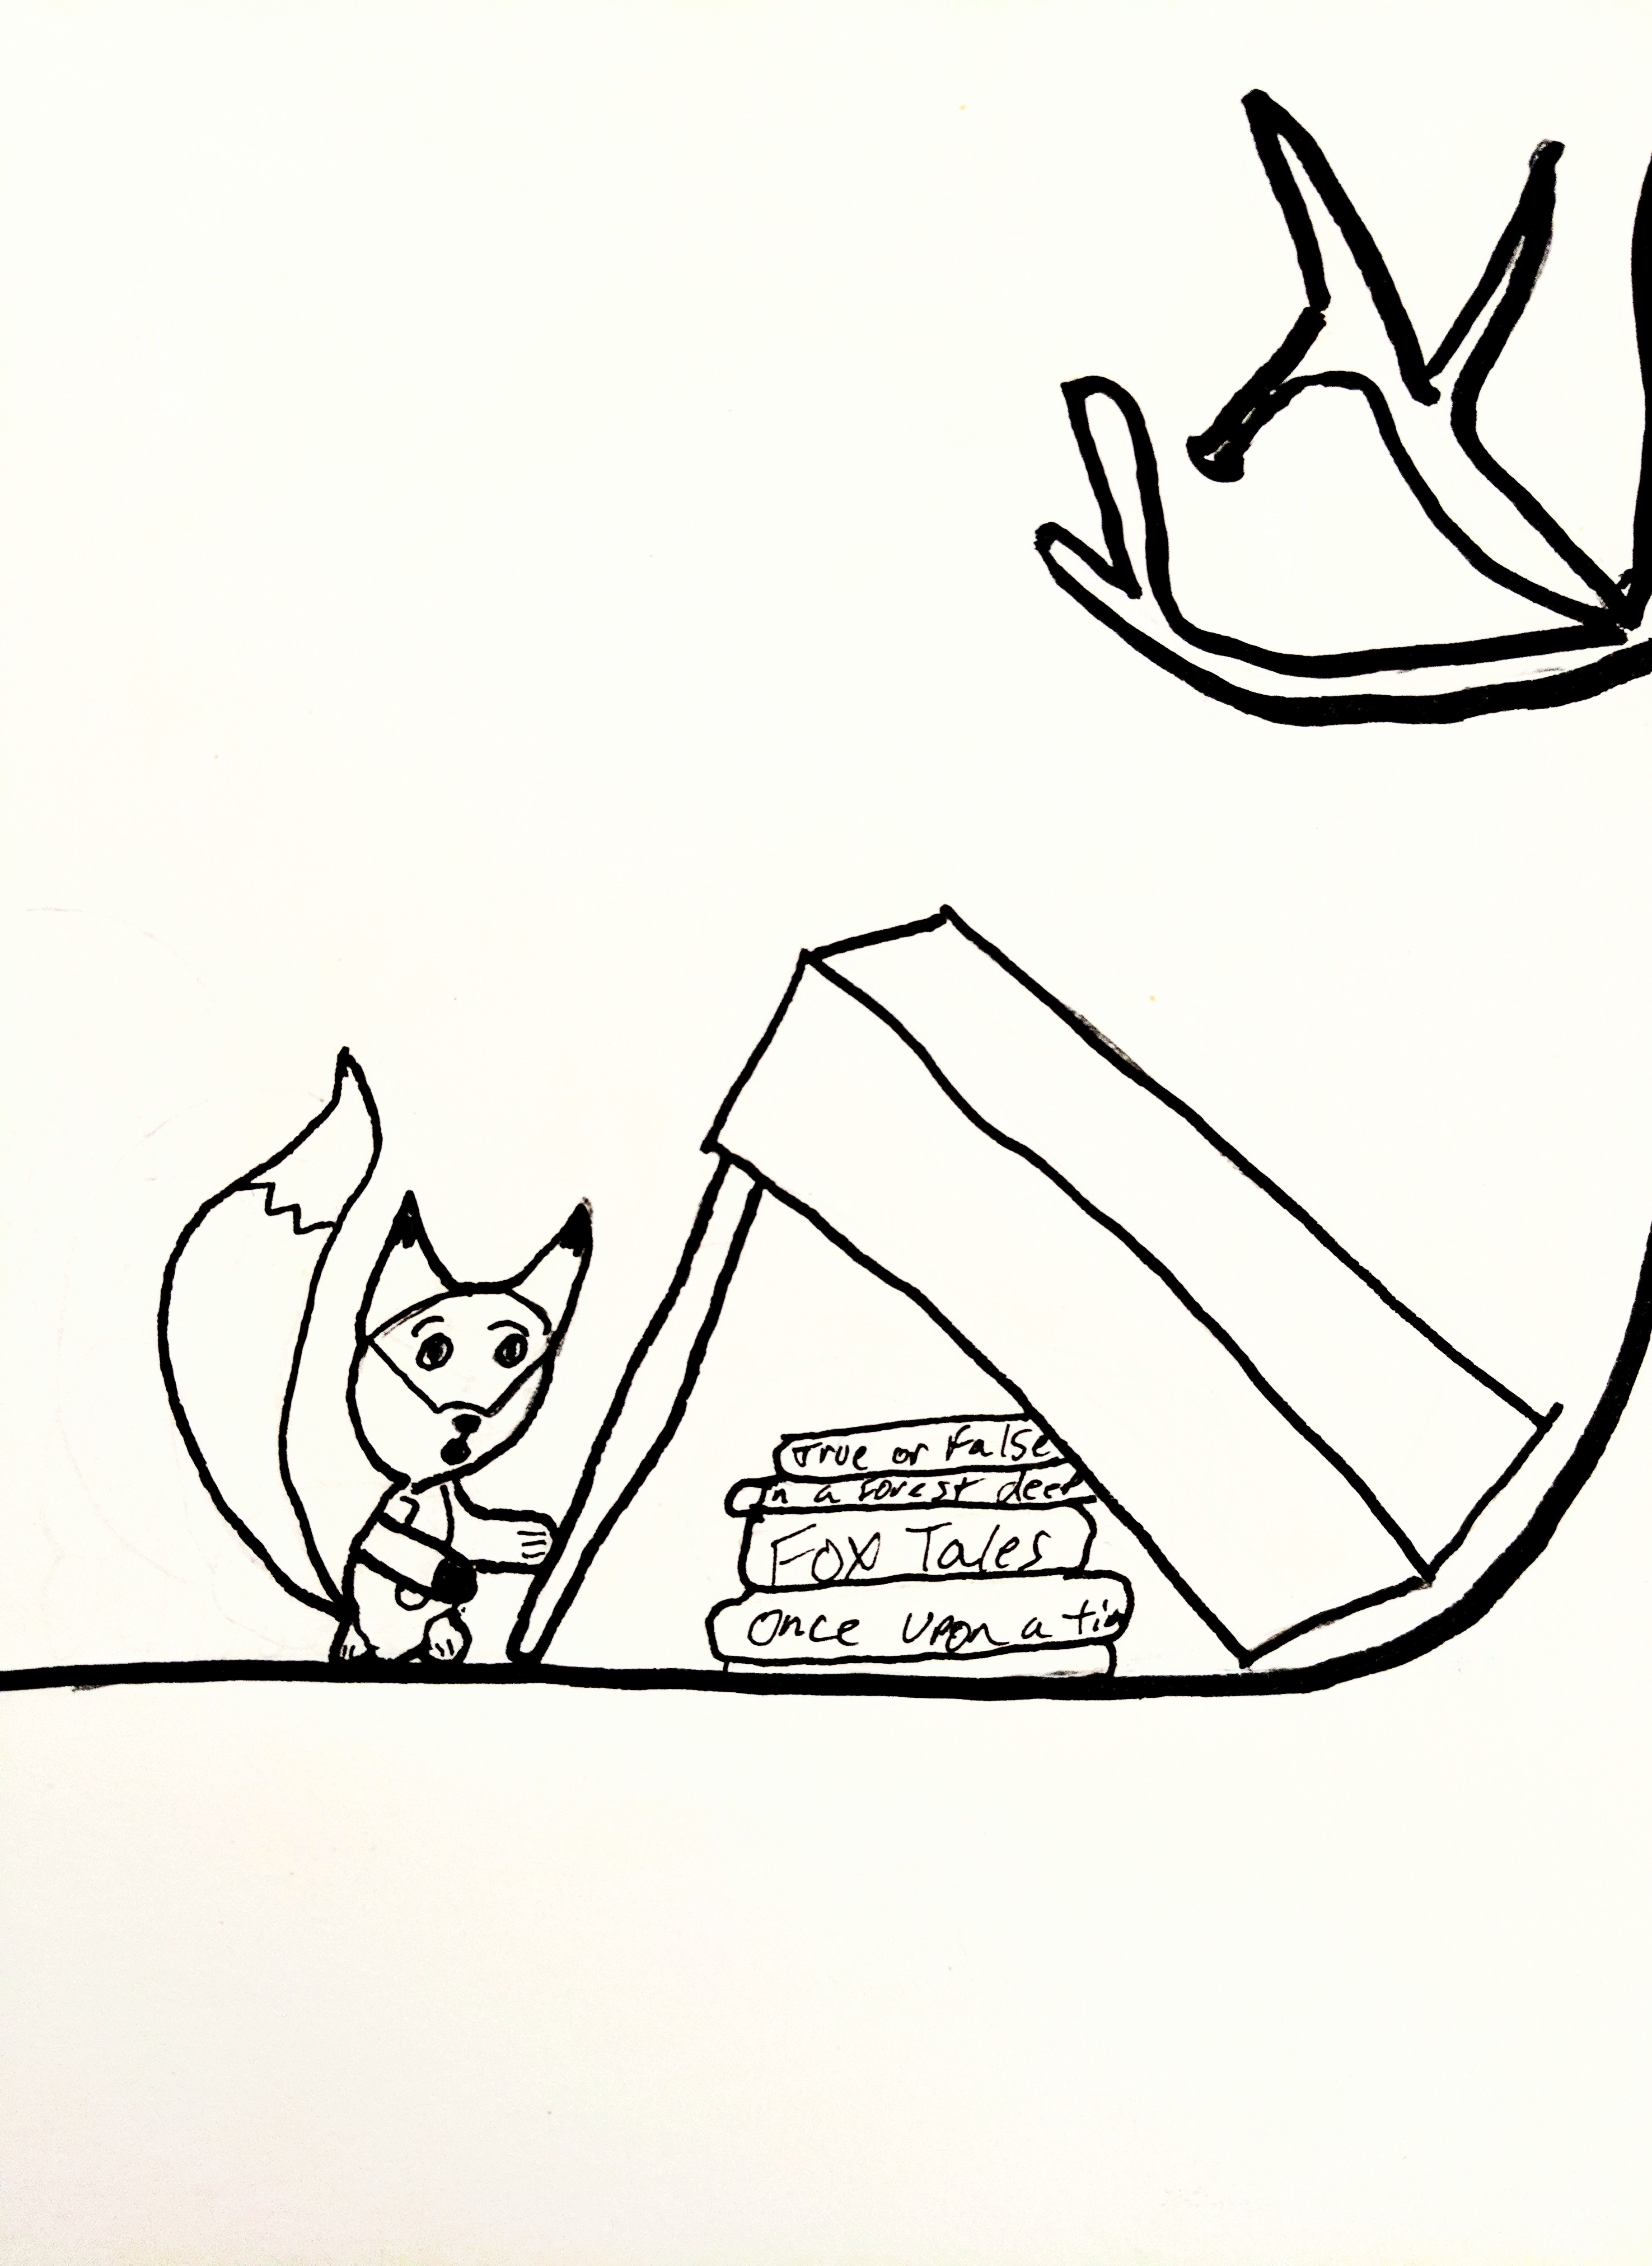 True or False
In a forest deep
Fox Tales
Once Upon a tim